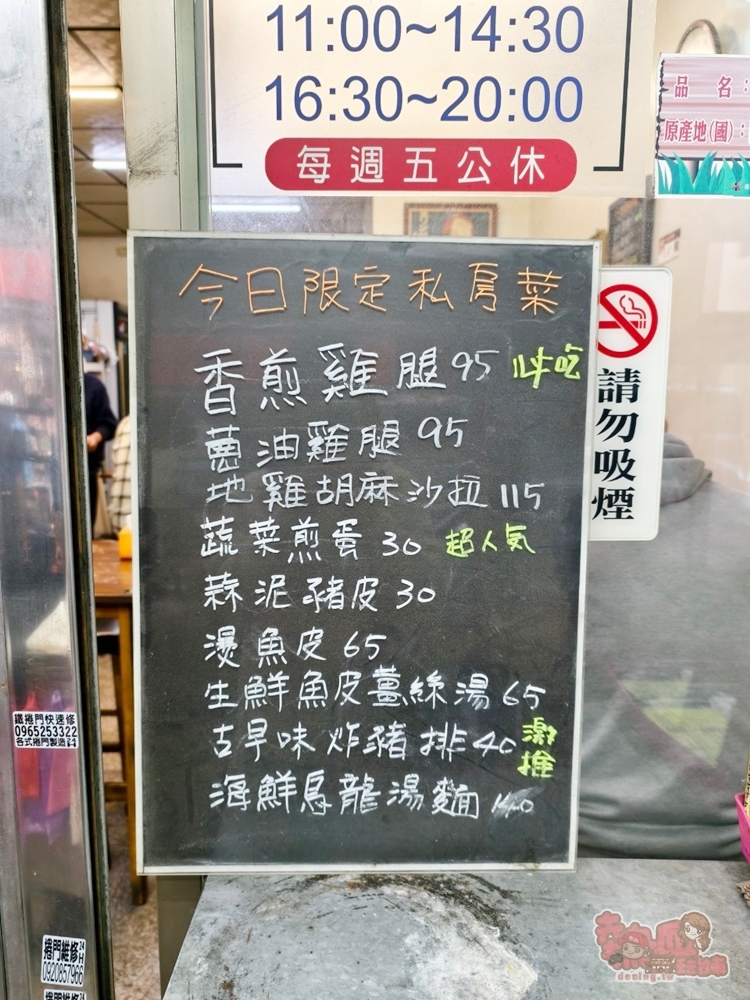 11:00~14:30
16:30~20:00
每週五公休
品 名：
原產地(國)：
今日限定私房菜
香煎雞腿 95 必吃
蔥油雞腿 95
地雞胡麻沙拉 115
蔬菜煎蛋 30 超人氣
蒜泥豬皮 30
燙魚皮 65
生鮮魚皮薑絲湯 65
古早味炸豬排 40 激推
海鮮烏龍湯麵 140
請勿吸煙
鐵捲門快速修
0965253322
各式捲門製造
捲門維修 24H
0920857966